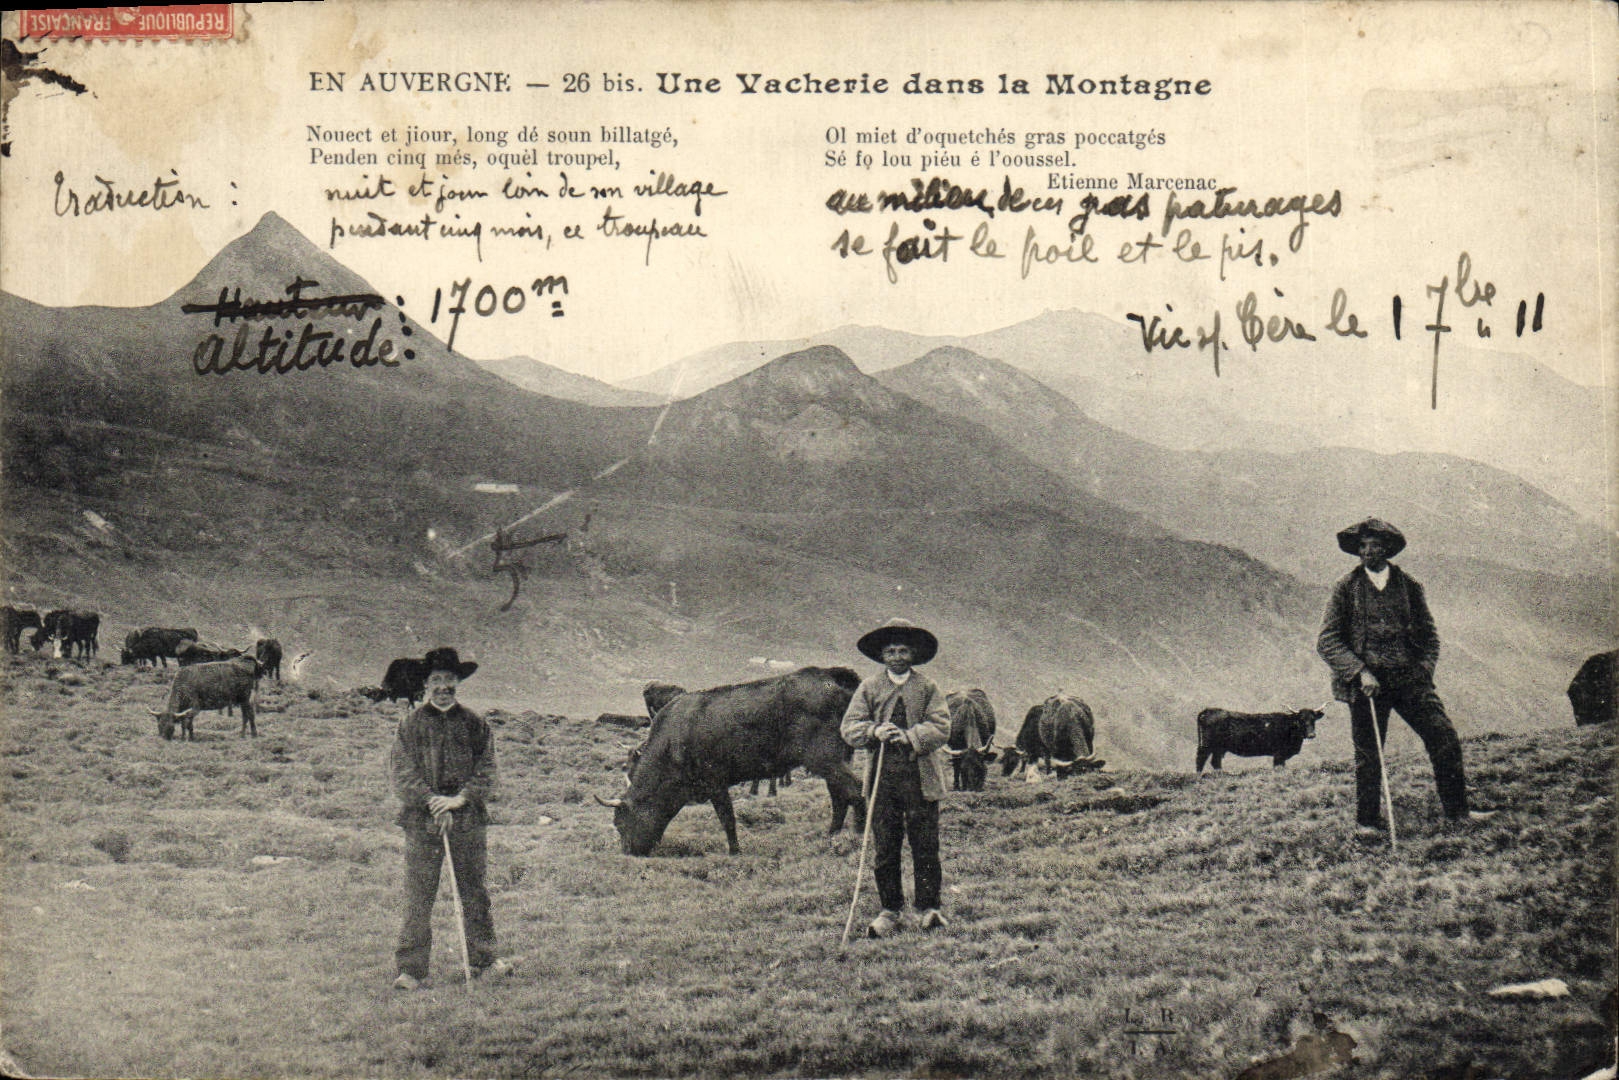 RÉPUBLIQUE FRANÇAISE
EN AUVERGNE — 26 bis. Une Vacherie dans la Montagne
Nouect et jiour, long dé soun billatgé,
Penden cinq més, oquèl troupel,
Ol miet d'oquetchés gras poccatgés
Sé fo lou piéu é l'ooussel.
Etienne Marcenac
Traduction :
nuit et jour loin de son village
pendant cinq mois, ce troupeau
au milieu de ces gras paturages
se fait le poil et le pis.
Hauteur : 1700 m
altitude :
Vic s/. Cère le 1 7bre 11
5
L. R